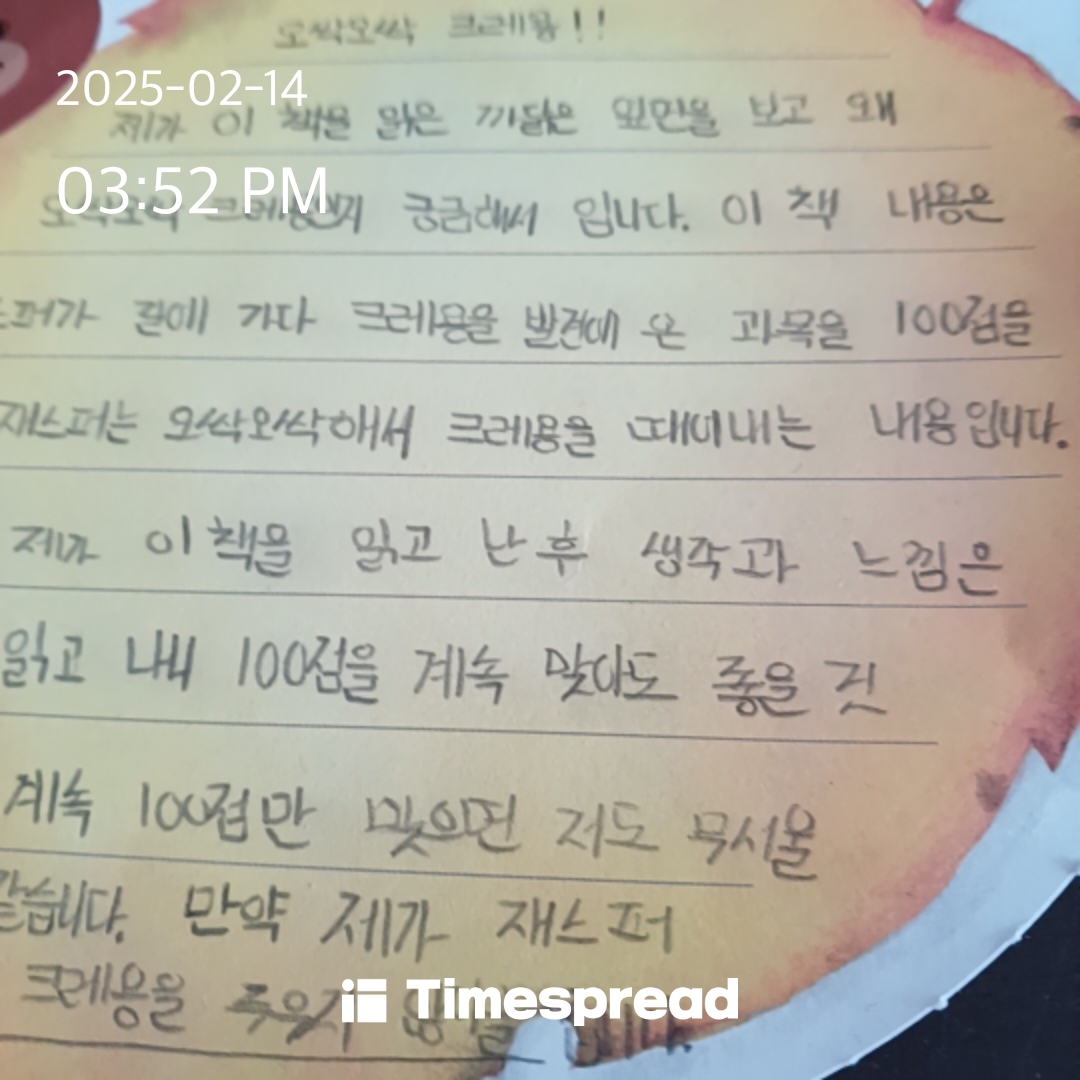 오싹오싹 크레용!!
2025-02-14
제가 이 책을 읽은 까닭은 앞면을 보고 왜
03:52 PM
오싹오싹 크레용인지 궁금해서 입니다. 이 책 내용은
스퍼가 길에 가다 크레용을 발견해 온 과목을 100점을
재스퍼는 오싹오싹해서 크레용을 떼어내는 내용입니다.
제가 이 책을 읽고 난 후 생각과 느낌은
읽고 내 100점을 계속 맞아도 좋을 것
계속 100점만 맞으면 저도 무서울
같습니다. 만약 제가 재스퍼
크레용을 주우지
Timespread